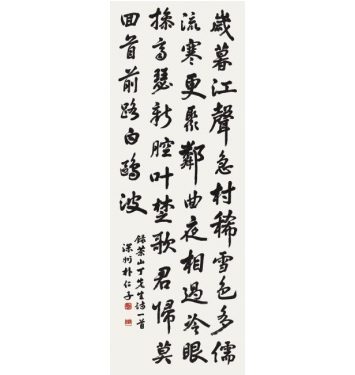 歲暮江聲急村稀雪色多儒
流寒更聚鄰曲夜相過冷眼
操高瑟新腔叶楚歌君歸莫
回首前路白鷗波
山丁先生詩一首
深州朴仁子